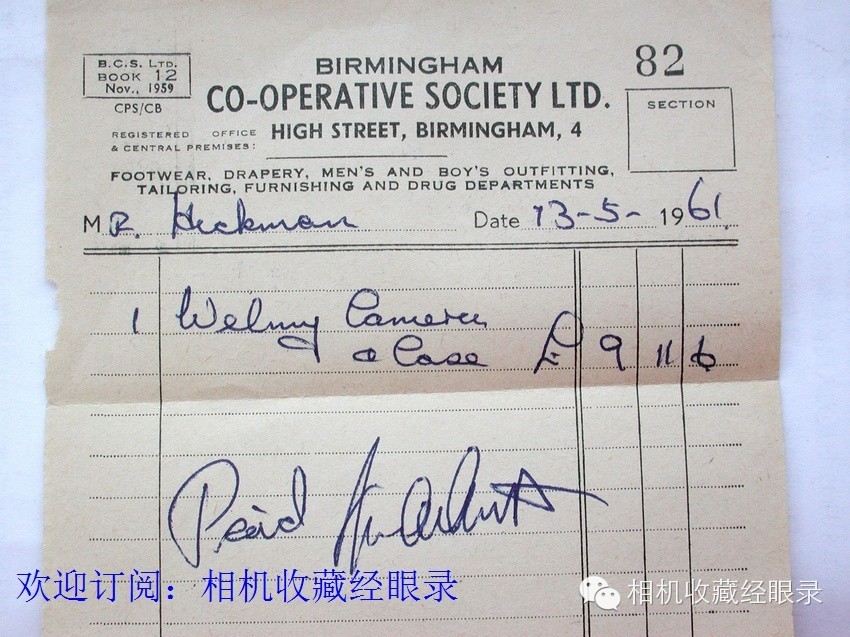 B.C.S. LTD.
BOOK 12
Nov., 1959
CPS/CB
BIRMINGHAM
82
CO-OPERATIVE SOCIETY LTD.
SECTION
REGISTERED OFFICE
& CENTRAL PREMISES:
HIGH STREET, BIRMINGHAM, 4
FOOTWEAR, DRAPERY, MEN'S AND BOY'S OUTFITTING,
TAILORING, FURNISHING AND DRUG DEPARTMENTS
MR. Heckman Date 13-5-1961
1 Welmy Camera
& Case £ 9 11 6
Paid
欢迎订阅：相机收藏经眼录
相机收藏经眼录